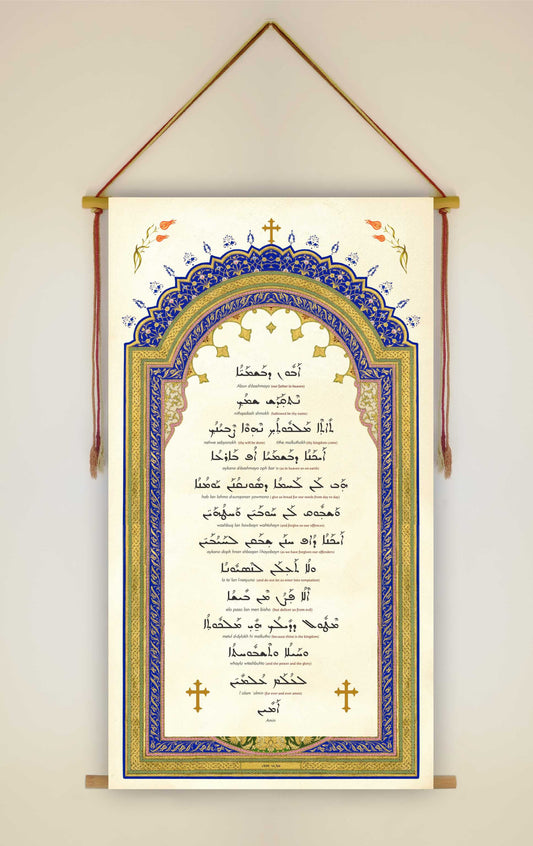 ܐܰܒܽܘܢ ܕܒܰܫܡܰܝܳܐ
Abun d'bashmayo (our father in heaven)
ܢܶܬܩܰܕܰܫ ܫܡܳܟ
nithqadash shmokh (hallowed be thy name)
ܬܺܐܬܶܐ ܡܰܠܟܽܘܬܳܟ ܢܶܗܘܶܐ ܨܶܒܝܳܢܳܟ
nehwe sebyonokh (thy will be done) tithe malkuthokh (thy kingdom come)
ܐܰܝܟܰܢܳܐ ܕܒܰܫܡܰܝܳܐ ܐܳܦ ܒܰܐܪܥܳܐ
aykano d'bashmayo oph bar'o (as in heaven so on earth)
ܗܰܒ ܠܰܢ ܠܰܚܡܳܐ ܕܣܽܘܢܩܳܢܰܢ ܝܰܘܡܳܢܳܐ
hab lan lahmo d'sunqonan yawmono (give us bread for our needs from day to day)
ܘܰܫܒܽܘܩ ܠܰܢ ܚܰܘܒܰܝܢ ܘܰܚܛܳܗܰܝܢ
washbuq lan hawbayn wahtohayn (and forgive us our offences)
ܐܰܝܟܰܢܳܐ ܕܳܐܦ ܚܢܰܢ ܫܒܰܩܢ ܠܚܰܝܳܒܰܝܢ
aykano doph hnan shbaqan l'hayobayn (as we have forgiven our offenders)
ܘܠܳܐ ܬܰܥܠܰܢ ܠܢܶܣܝܽܘܢܳܐ
lo te'lan l'nesyuno (and do not let us enter into temptation)
ܐܶܠܳܐ ܦܰܨܳܢ ܡܶܢ ܒܺܝܫܳܐ
elo paso lan men bisho (but deliver us from evil)
ܡܶܛܽܠ ܕܕܺܝܠܳܟ ܗܺܝ ܡܰܠܟܽܘܬܳܐ
metul d'dylokh hi malkutho (because thine is the kingdom)
ܘܚܰܝܠܳܐ ܘܬܶܫܒܽܘܚܬܳܐ
whaylo wteshbuhto (and the power and the glory)
ܠܥܳܠܰܡ ܥܳܠܡܺܝܢ
l'olam 'olmin (for ever and ever amen)
ܐܰܡܺܝܢ
Amin